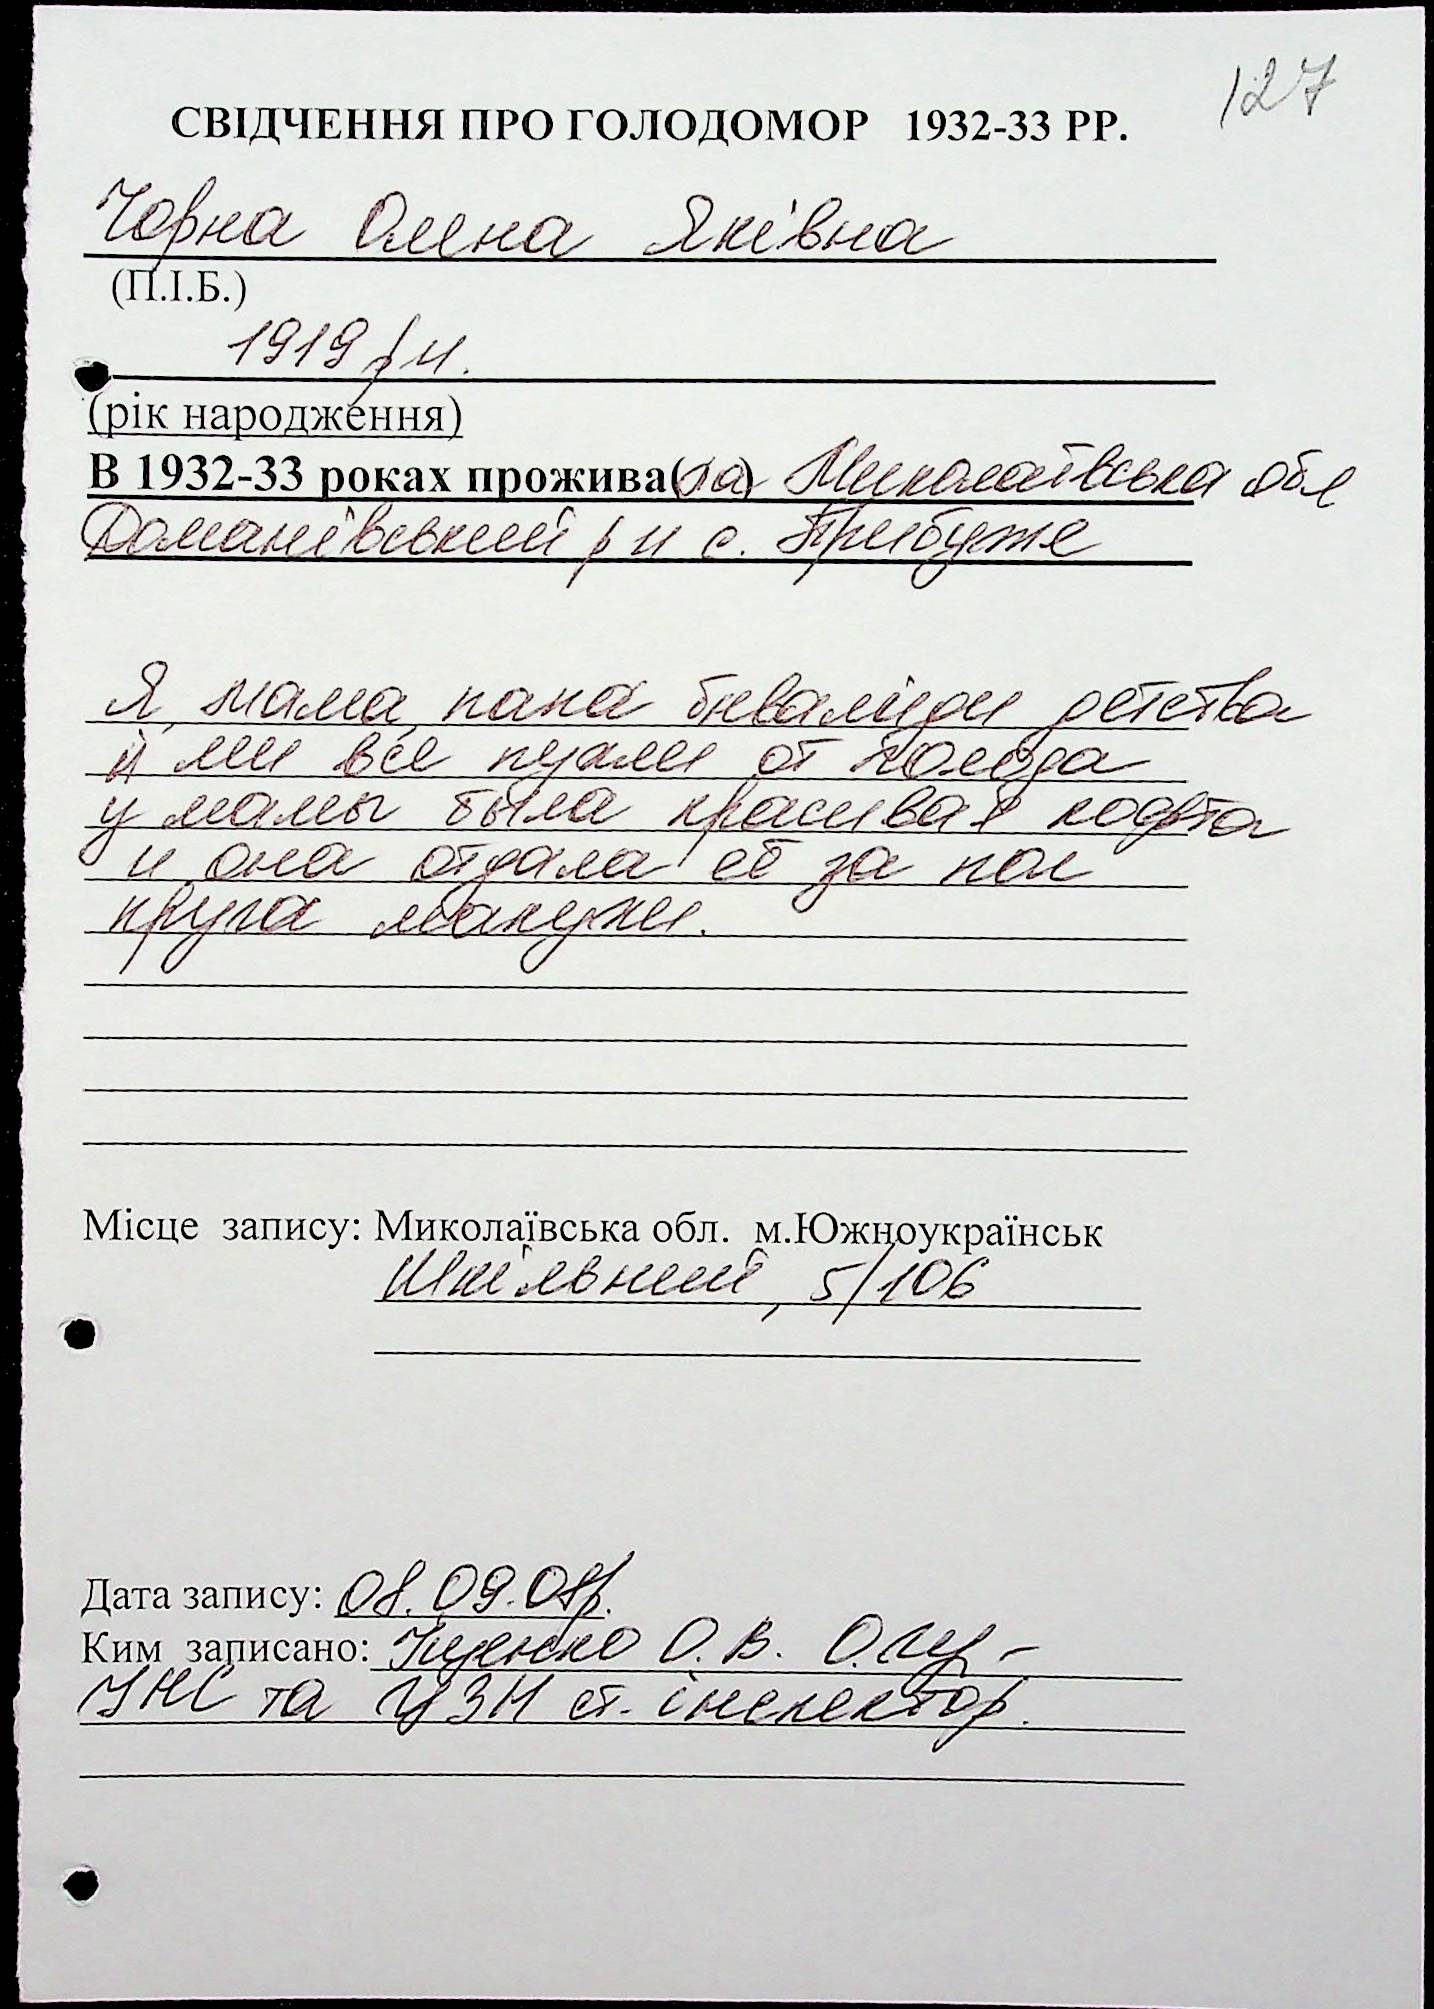 127
СВІДЧЕННЯ ПРО ГОЛОДОМОР 1932-33 РР.
Чорна Олена Яківна
(П.І.Б.)
1919 р н.
(рік народження)
В 1932-33 роках прожива(ла) Миколаївська обл
Доманівський р н с. Прибуже
Я, мама, папа детства
и ми все пухли от голода
у мамы была красивая кофта
и она отдала её за пол
круга макухи.
Місце запису: Миколаївська обл. м.Южноукраїнськ
Шкільний, 5/106
Дата запису: 08.09.08р.
Ким записано: О.В.
УНС та ЦЗН ст. інспектор.